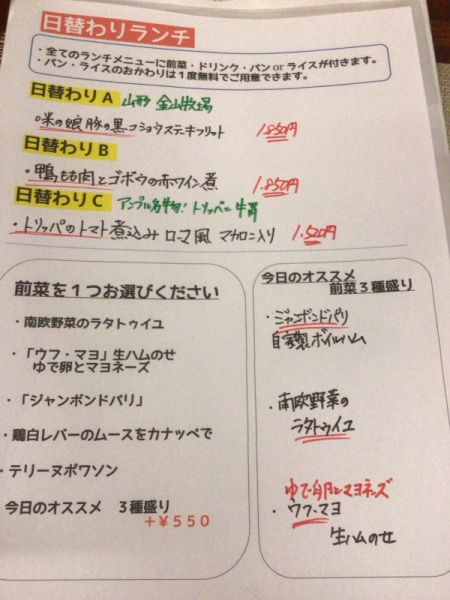 日替わりランチ
・全てのランチメニューに前菜・ドリンク・パンorライスが付きます。
・パン・ライスのおかわりは1度無料でご用意できます。
日替わりA 山形 金山牧場
○米の娘豚の黒コショウステーキフリット 1.850円
日替わりB
・鴨もも肉とゴボウの赤ワイン煮 1.850円
日替わりC アンプル名物!トリッパ=牛胃
・トリッパのトマト煮込み ローマ風 マカロニ入り 1.520円
前菜を1つお選びください
・南欧野菜のラタトゥイユ
・「ウフ・マヨ」生ハムのせ
ゆで卵とマヨネーズ
・「ジャンボンドパリ」
・鶏白レバーのムースをカナッペで
・テリーヌポワソン
今日のオススメ 3種盛り
+¥550
今日のオススメ
前菜3種盛り
・ジャンボンドパリ
自家製ボイルハム
・南欧野菜の
ラタトゥイユ
ゆで卵とマヨネーズ
・ウフ・マヨ
生ハムのせ